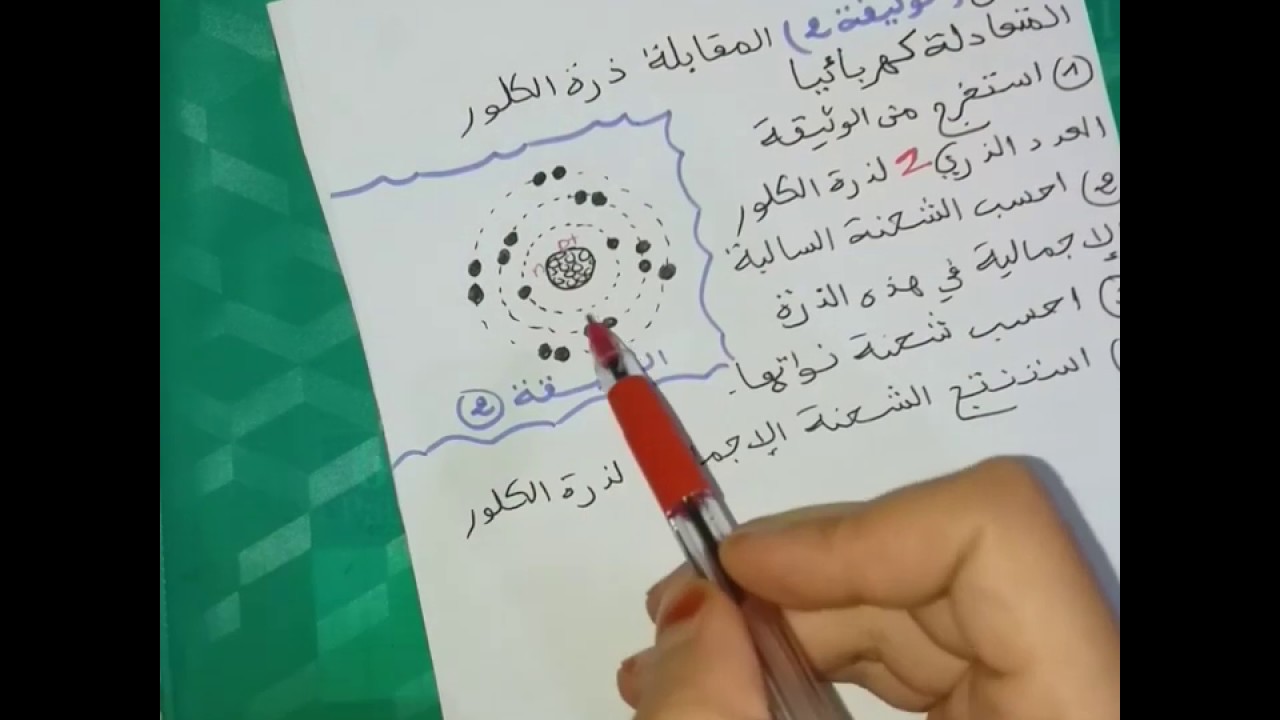 (وثيقة 2) المقابلة ذرة الكلور
المتعادلة كهربائيا
① استخرج من الوثيقة
العدد الذري Z لذرة الكلور
② احسب الشحنة السالبة
الإجمالية في هذه الذرة
احسب شحنة نواتها.
استنتج الشحنة
لذرة الكلور
p+
n
②